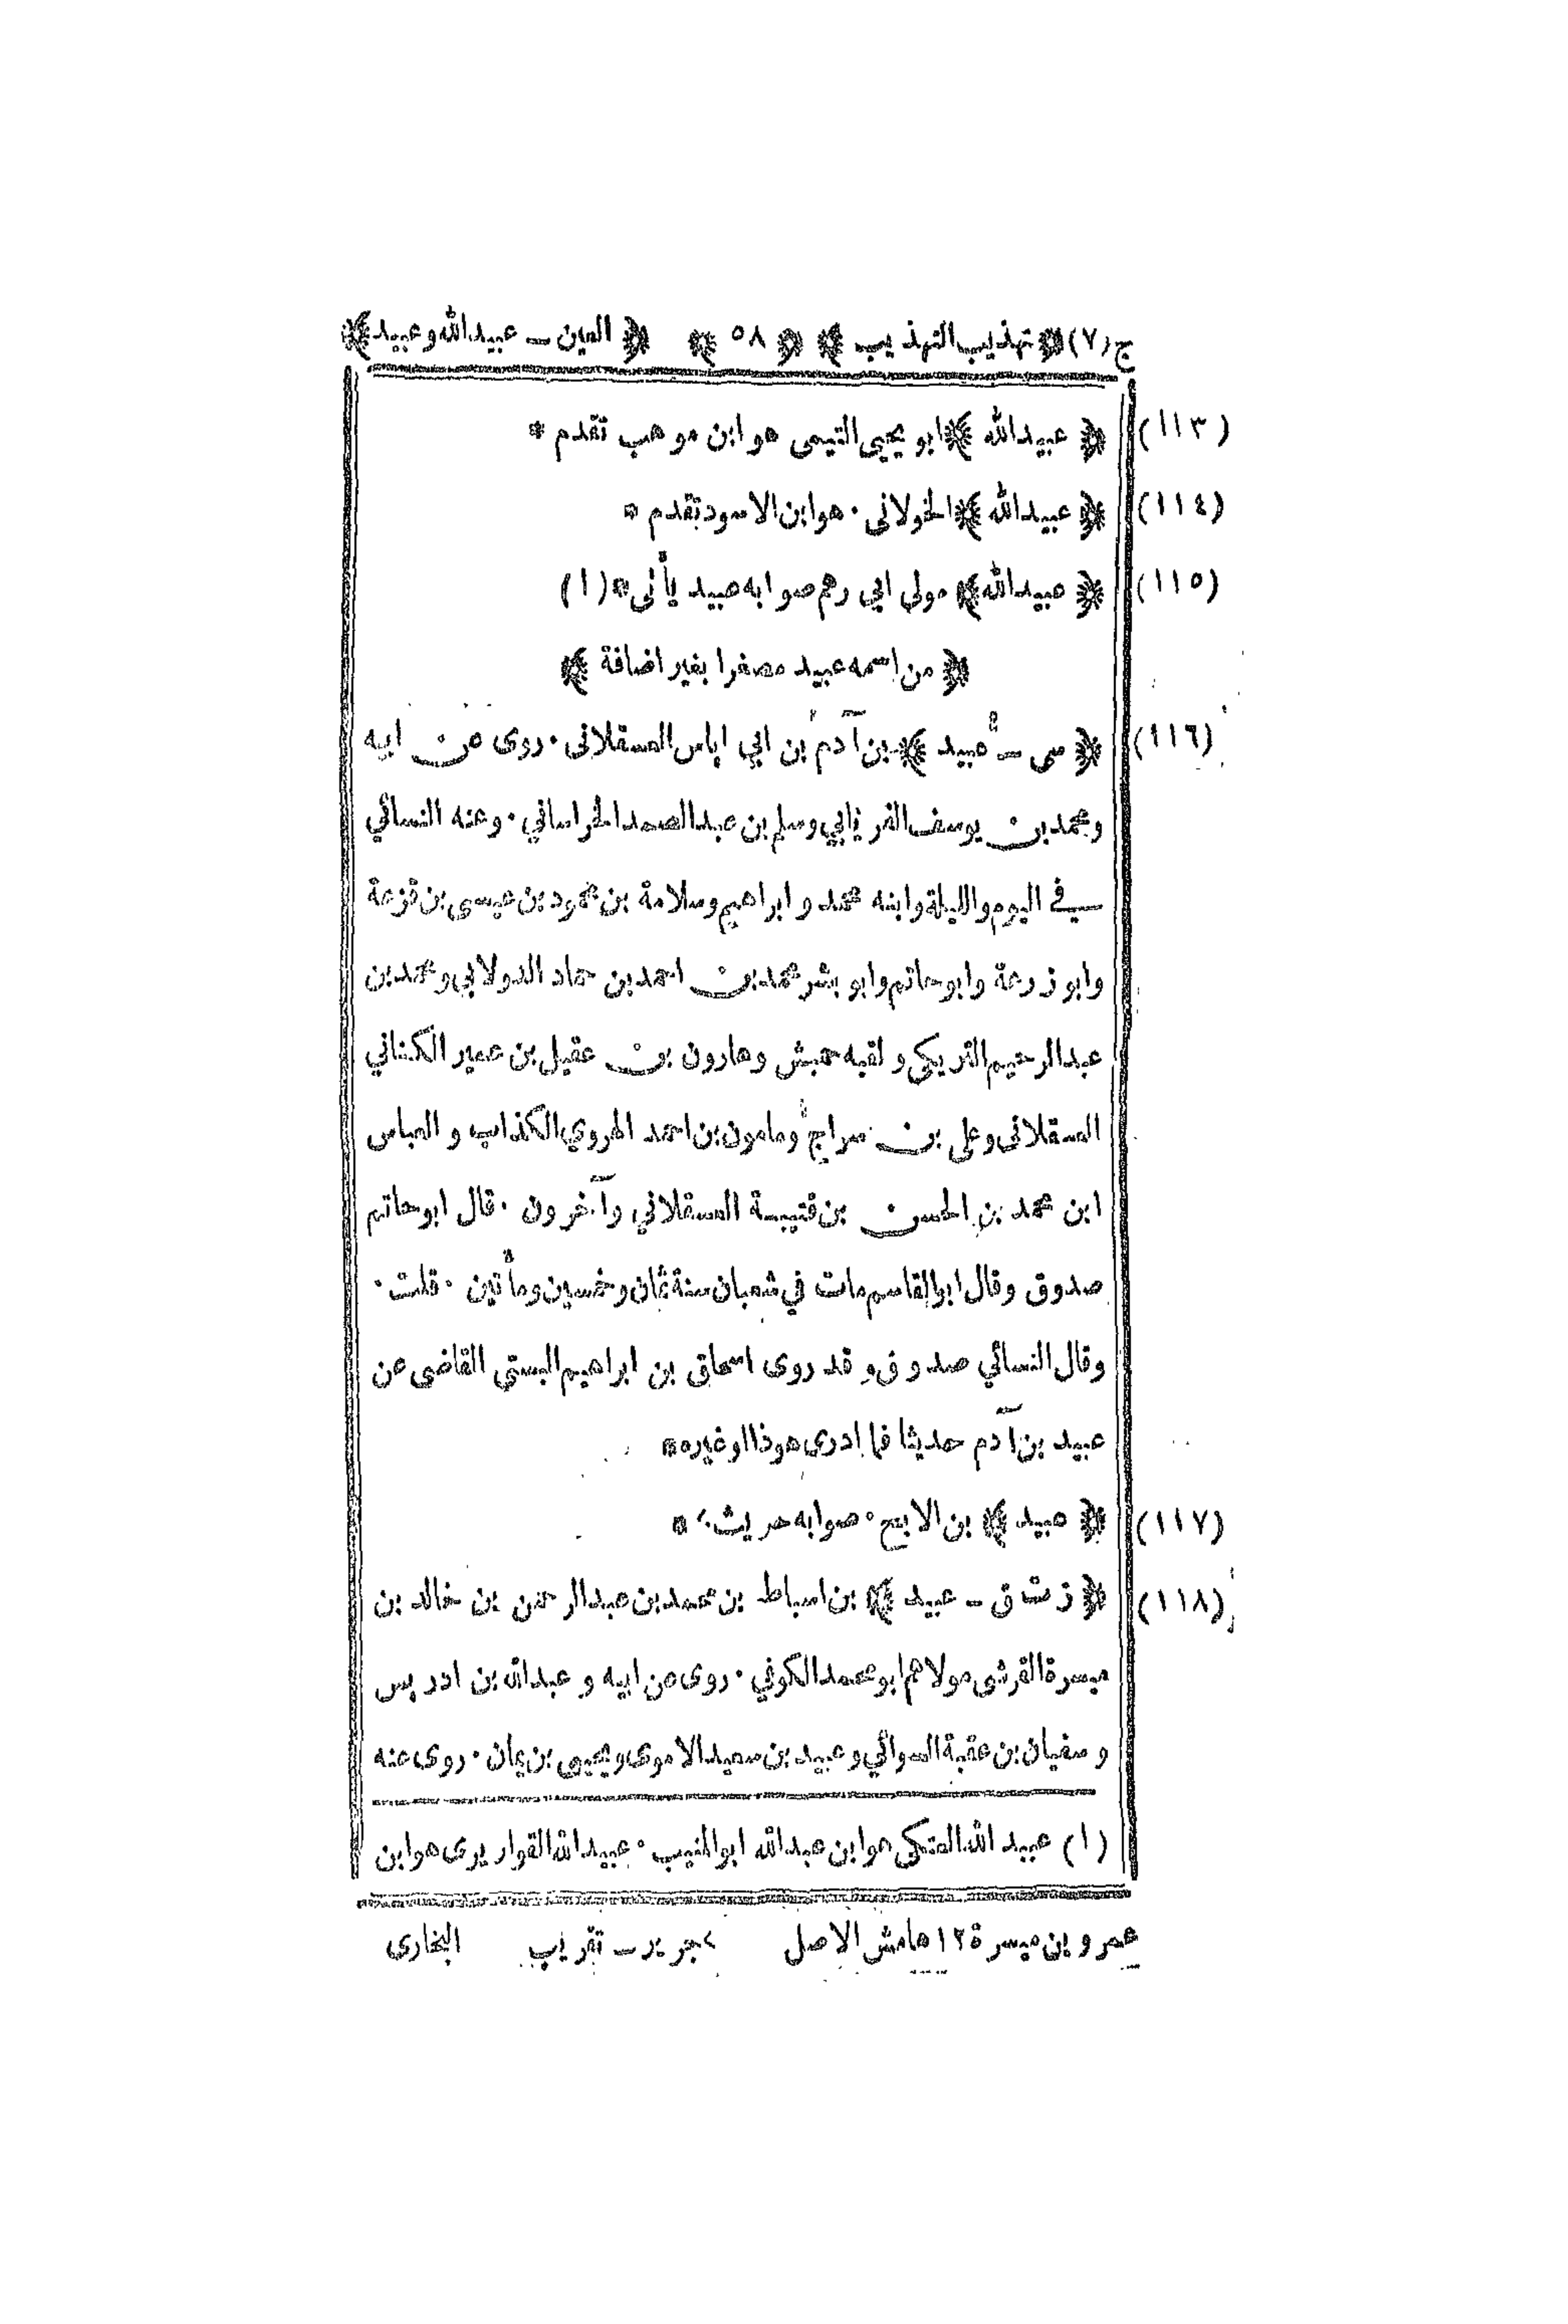 ج(٧) ﴿ تهذيب التهذيب ﴾ ﴿ ٥٨ ﴾ ﴿ العين ـ عبيدالله وعبيد ﴾
(١١٣) ﴿ عبيدالله ﴾ ابو يحيى التيمى هو ابن موهب تقدم *
(١١٤) ﴿ عبيدالله ﴾ الخولانى ٠ هو ابن الاسود تقدم *
(١١٥) ﴿ عبيدالله ﴾ مولى ابي رهم صوابه عبيد يأتى * (١)
﴿ من اسمه عبيد مصغرا بغير اضافة ﴾
(١١٦) ﴿ سى ـ عبيد ﴾ بن آدم بن ابي اياس العسقلانى ٠ روى عن ابيه
ومحمد بن يوسف الفريابي وسلم بن عبد الصمد الخراساني ٠ وعنه النسائي
في اليوم والليلة وابنه محمد وابراهيم وسلامة بن محمود بن عيسى بن قزعة
وابو زرعة وابو حاتم وابو بشر محمد بن احمد بن حماد الدولابي ومحمد بن
عبد الرحيم التريكى ولقبه حبش وهارون بن عقيل بن عمير الكناني
العسقلانى وعلى بن سراج ومامون بن احمد الهروي الكذاب والعباس
ابن محمد بن الحسن بن قتيبة العسقلاني وآخرون ٠ قال ابو حاتم
صدوق وقال ابوالقاسم مات في شعبان سنة ثمان وخمسين ومأتين ٠ قلت ٠
وقال النسائي صدوق وقد روى اسحاق بن ابراهيم البستي القاضى عن
عبيد بن آدم حديثا فما ادرى هوذا او غيره *
(١١٧) ﴿ عبيد ﴾ بن الابح ٠ صوابه حريث ٠ *
(١١٨) ﴿ ز ت ق ـ عبيد ﴾ بن اسباط بن محمد بن عبد الرحمن بن خالد بن
ميسرة القرشى مولاهم ابو محمد الكوفي ٠ روى عن ابيه وعبدالله بن ادريس
وسفيان بن عقبة السوائي وعبيد بن سعيد الاموى ويحيى بن يمان ٠ روى عنه
(١) عبيد الله العتكى هو ابن عبدالله ابو المنيب ٠ عبيدالله القواريرى هو ابن
عمرو بن ميسرة ١٢ هامش الاصل ـ تقريب البخارى